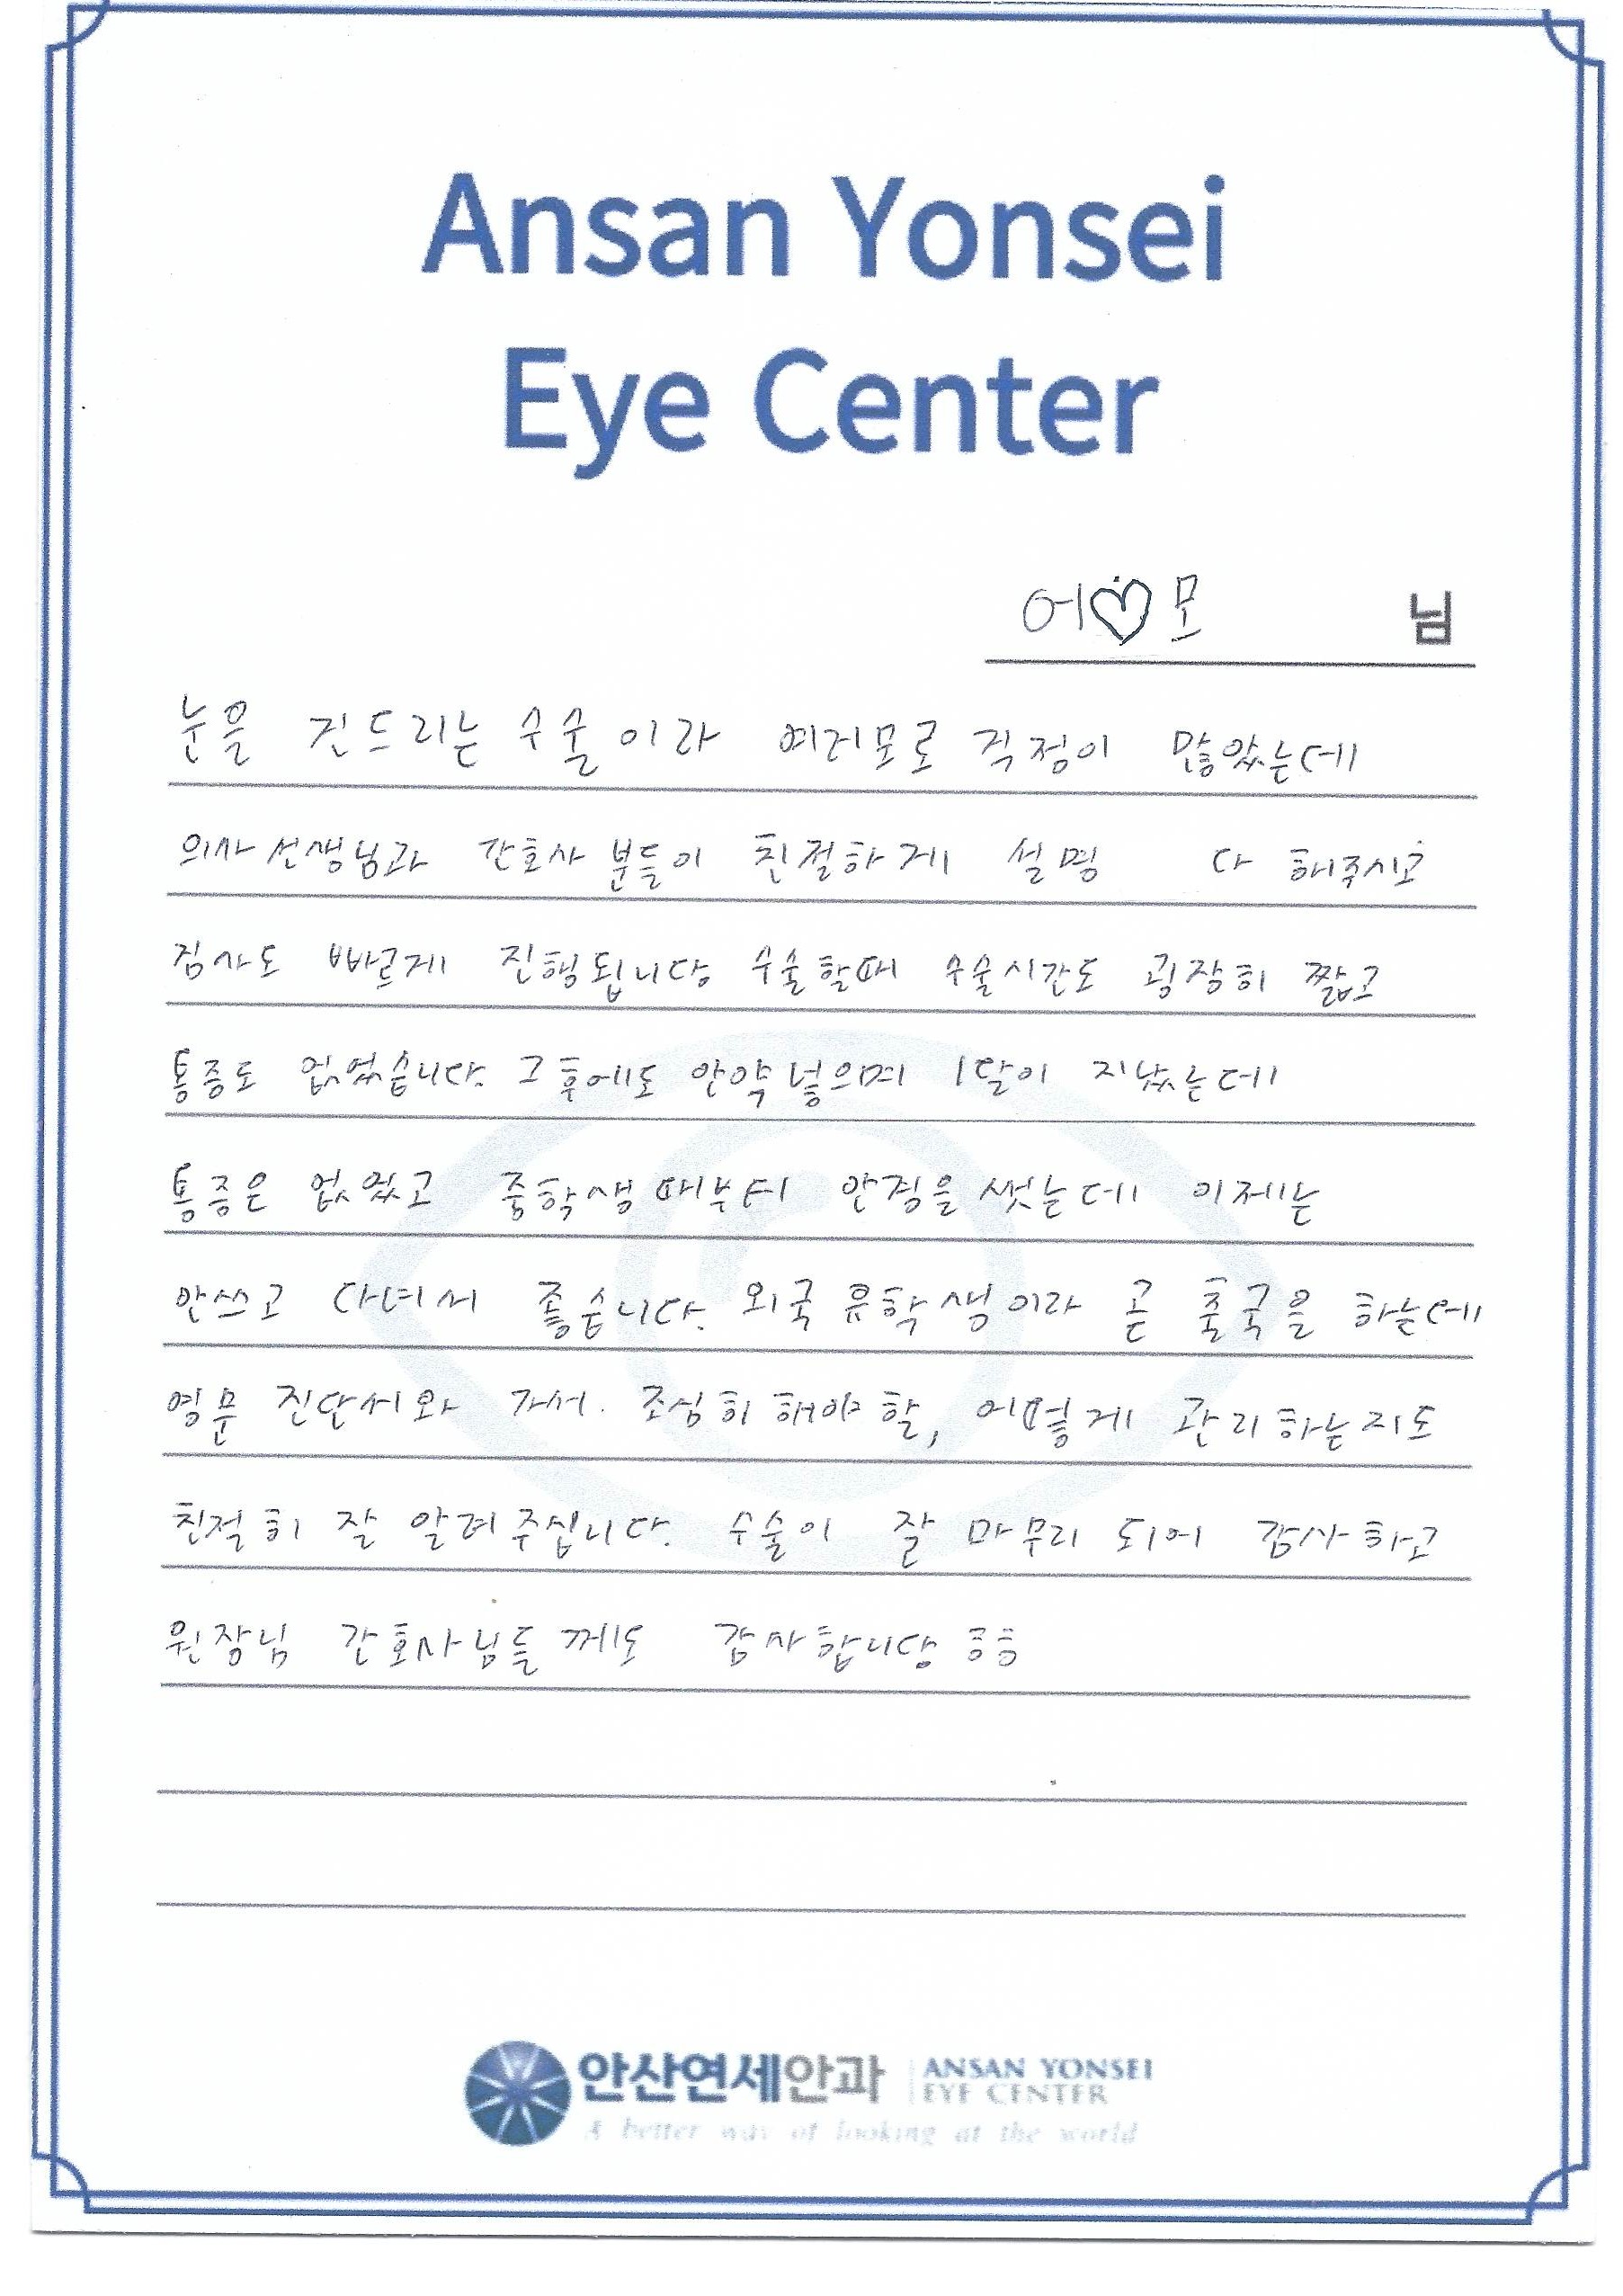 Ansan Yonsei
Eye Center
어♡모 님
눈을 건드리는 수술이라 여러모로 걱정이 많았는데
의사선생님과 간호사 분들이 친절하게 설명 다 해주시고
검사도 빠르게 진행됩니당 수술할때 수술시간도 굉장히 짧고
통증도 없었습니다. 그후에도 안약넣으며 1달이 지났는데
통증은 없었고 중학생때부터 안경을 썻는데 이제는
안쓰고 다녀서 좋습니다. 외국 유학생이라 곧 출국을 하는데
영문 진단서와 가서. 조심히 해야할, 어떻게 관리하는지도
친절히 잘 알려주십니다. 수술이 잘 마무리 되어 감사하고
원장님 간호사님들께도 감사합니당 ㅎㅎ
안산연세안과 ANSAN YONSEI
EYE CENTER
A better way of looking at the world